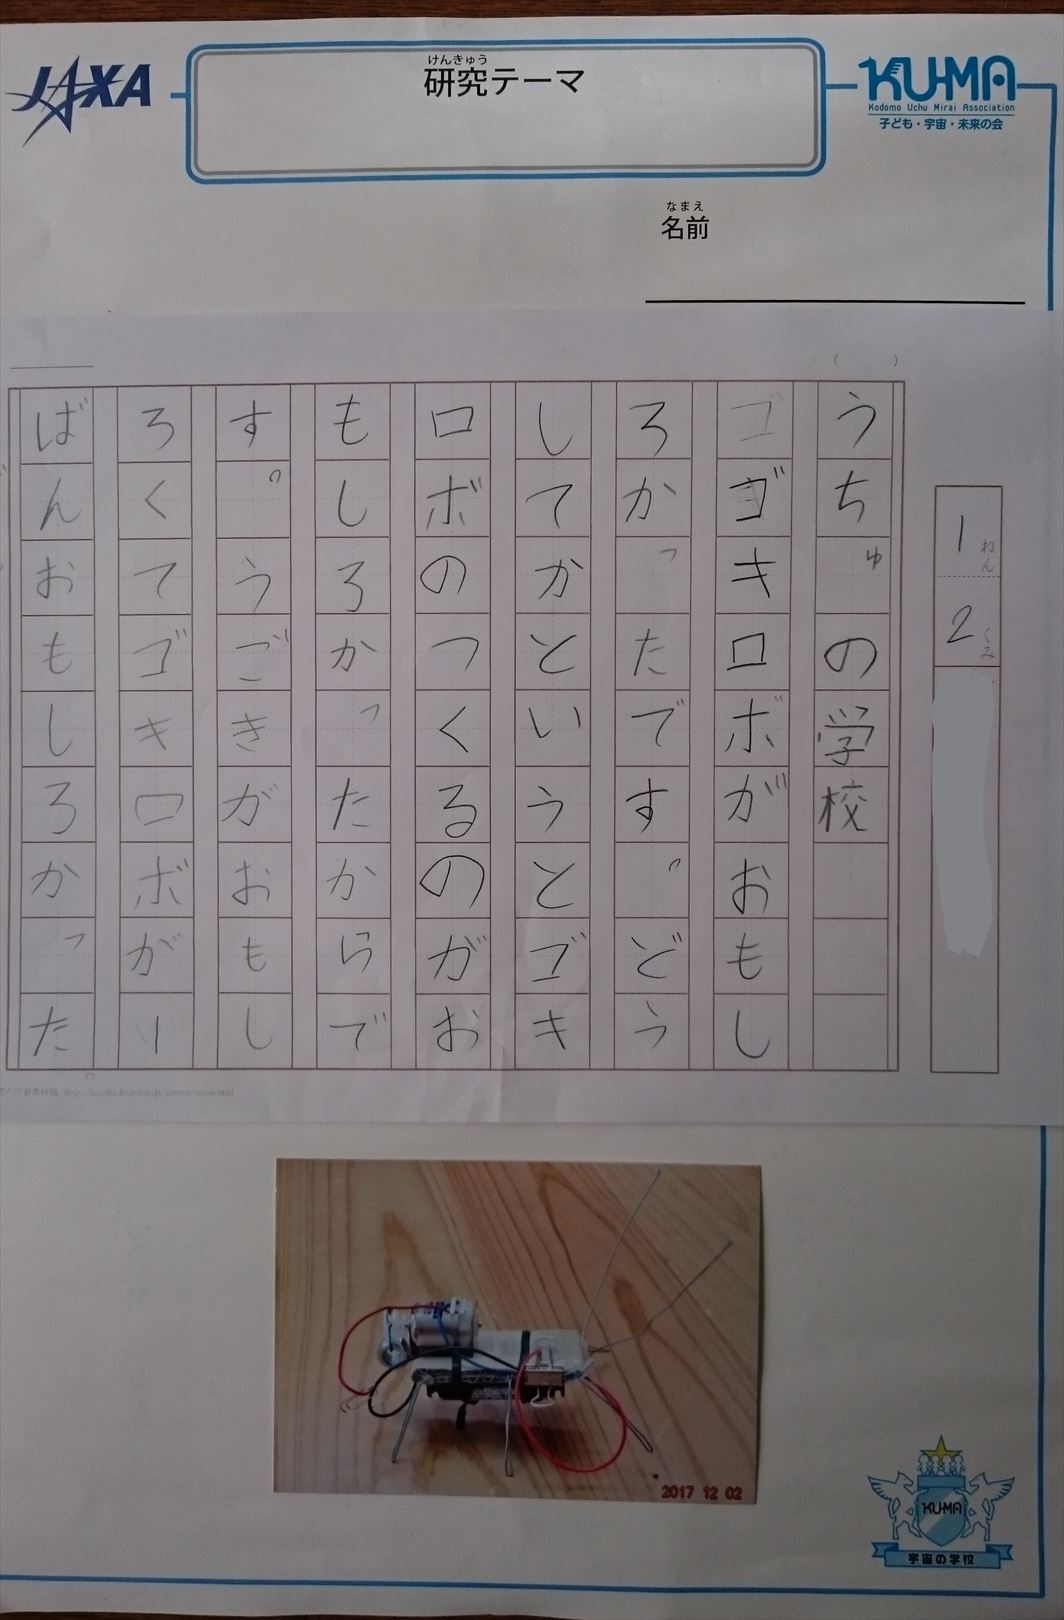 JAXA
けんきゅう
研究テーマ
KU-MA
Kodomo Uchu Mirai Association
子ども・宇宙・未来の会
なまえ
名前
( )
1ねん
2くみ
うちゅの学校
ゴゴキロボがおもし
ろかったです。どう
してかというとゴキ
ロボのつくるのがお
もしろかったからで
す。うごきがおもし
ろくてゴキロボがい
ばんおもしろかった。
2017 12 02
KU-MA
宇宙の学校